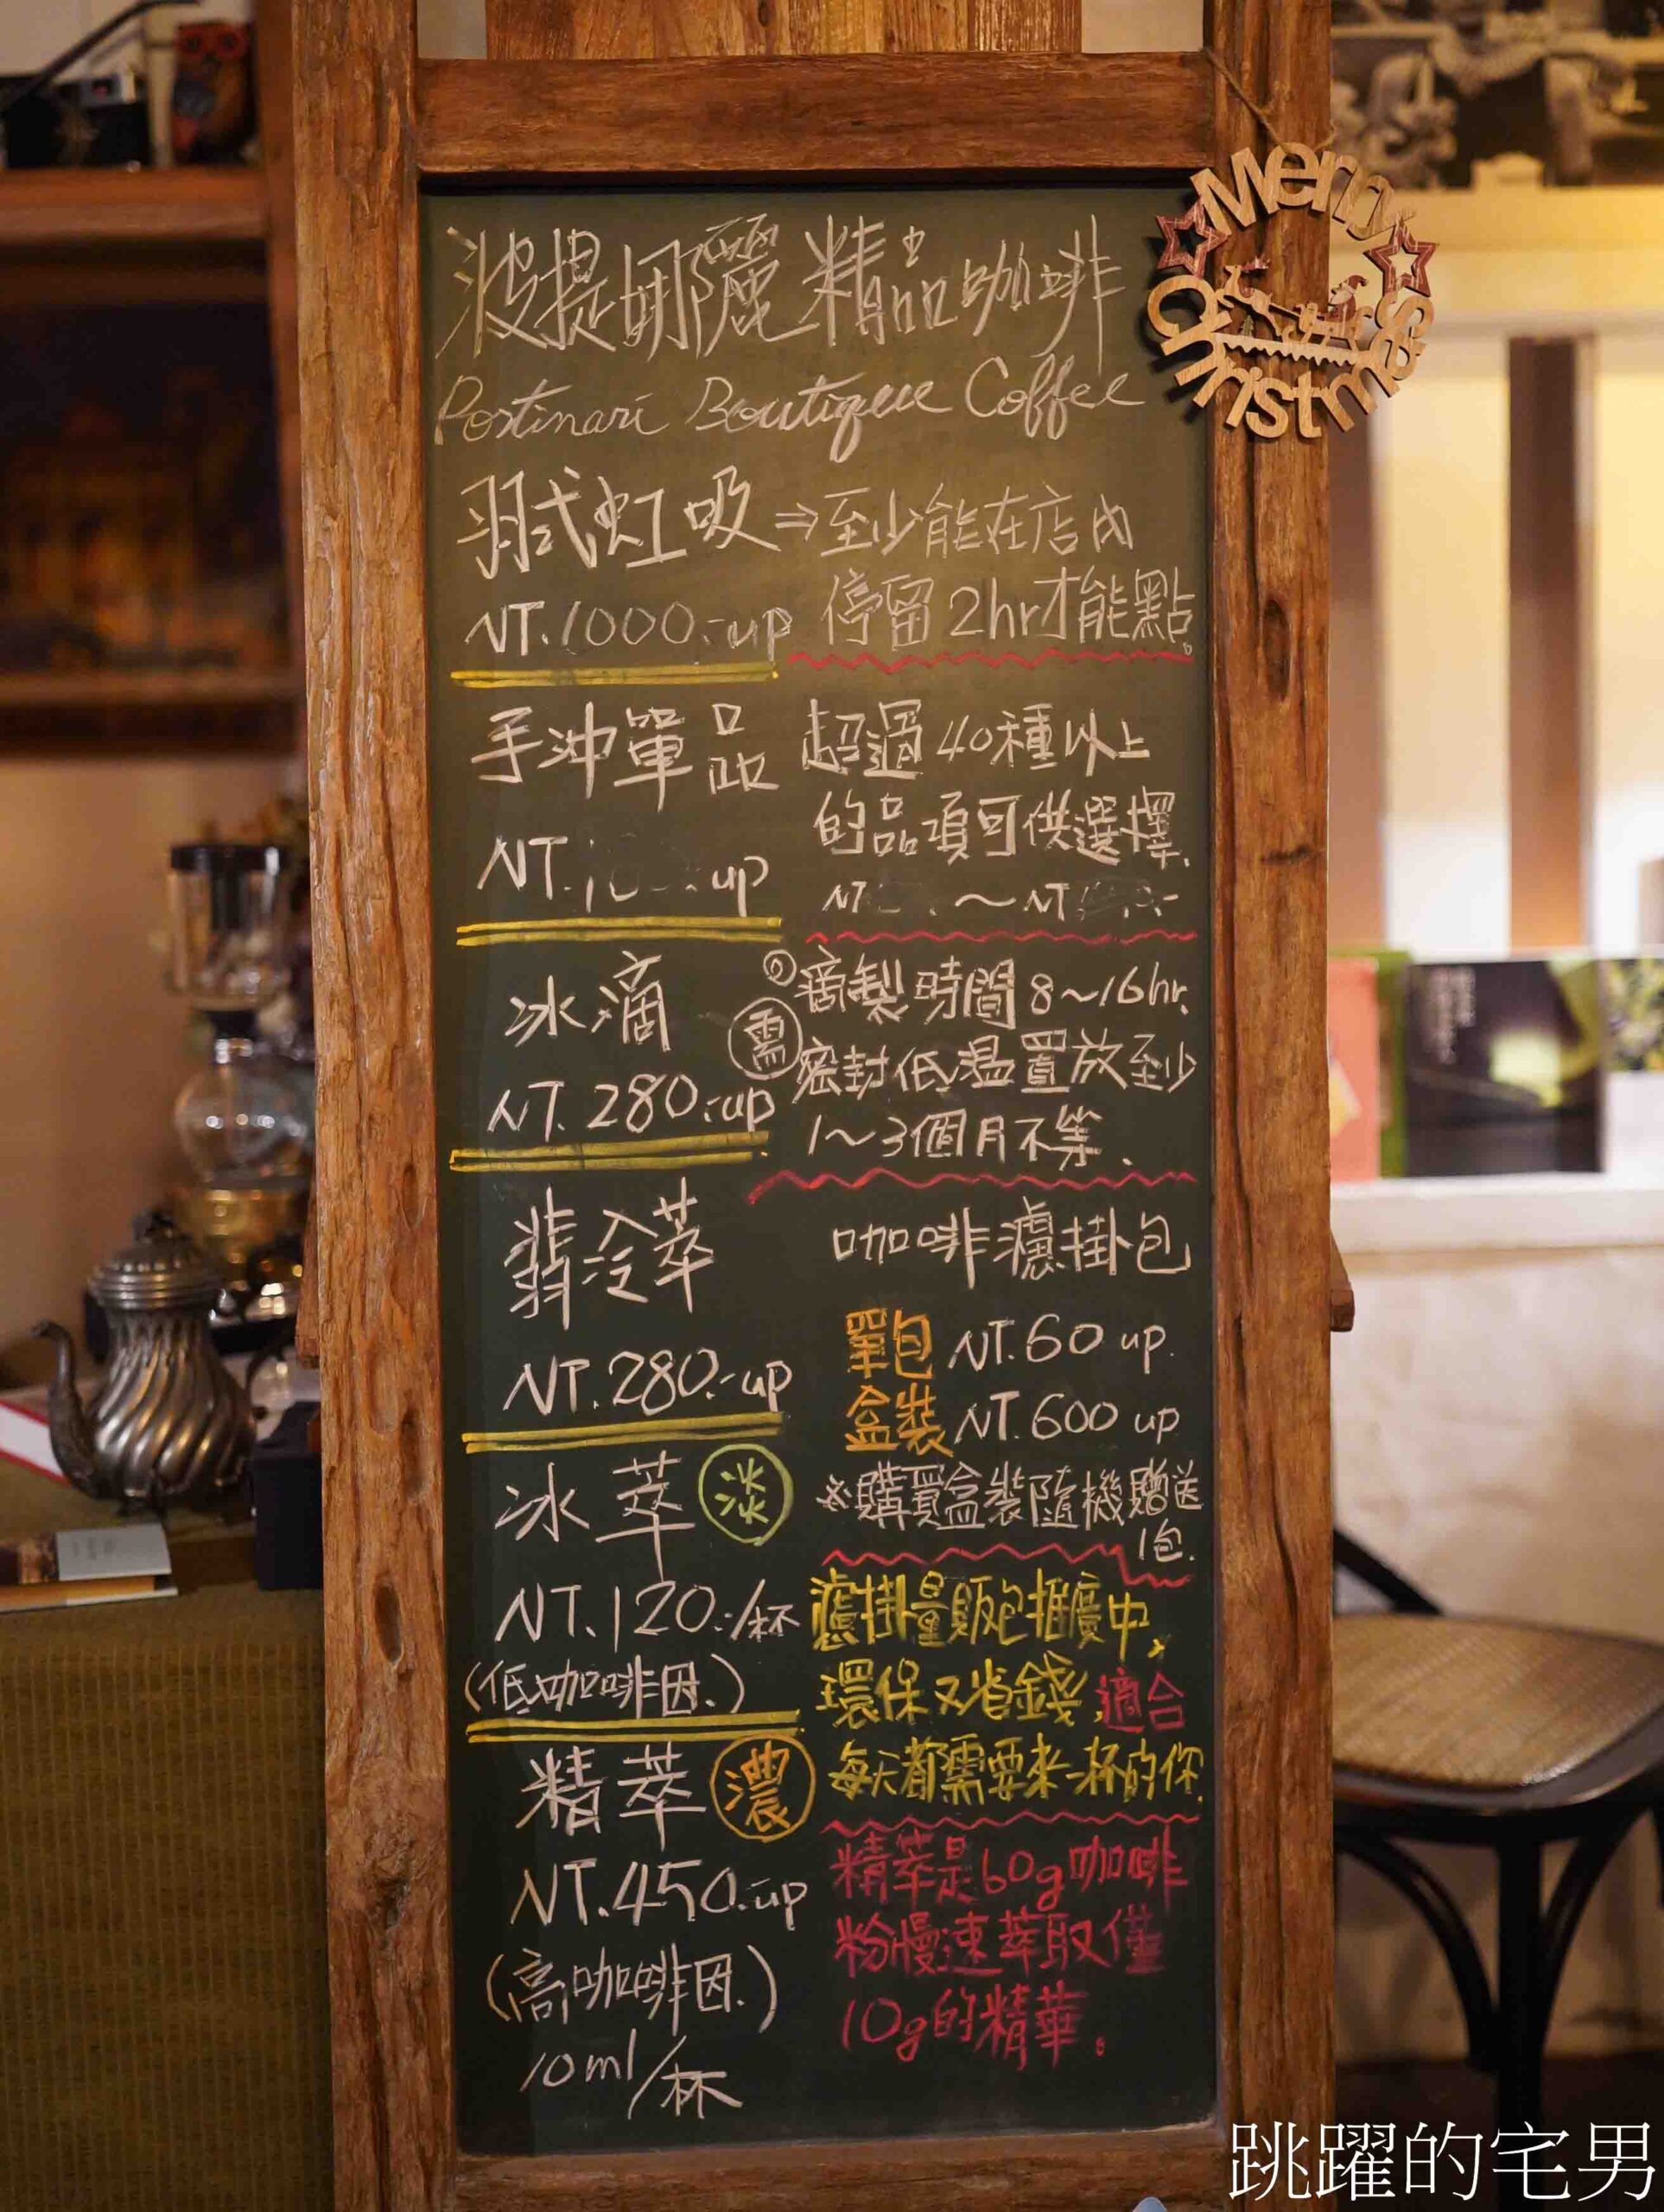 波提娜麗精品咖啡
Portinari Boutique Coffee
Merry
Christmas
羽式虹吸⇒至少能在店內
停留2hr才能點。
NT.1000.-up
手沖單品
NT. up
超過40種以上
的品項可供選擇.
NT ~NT
冰滴
NT.280.-up
滴製時間8~16hr.
需
密封低溫置放至少
1~3個月不等.
翡冷萃
NT.280.-up
咖啡濾掛包
單包 NT.60 up.
盒裝 NT.600 up
※購買盒裝隨機贈送
1包.
冰萃 淡
NT.120.-/杯
(低咖啡因.)
濾掛量販包推廣中,
環保又省錢,適合
每天都需要來一杯的你.
精萃 濃
NT.450.-up
(高咖啡因.)
10ml/杯
精萃是60g咖啡
粉慢速萃取僅
10g的精華。
跳躍的宅男